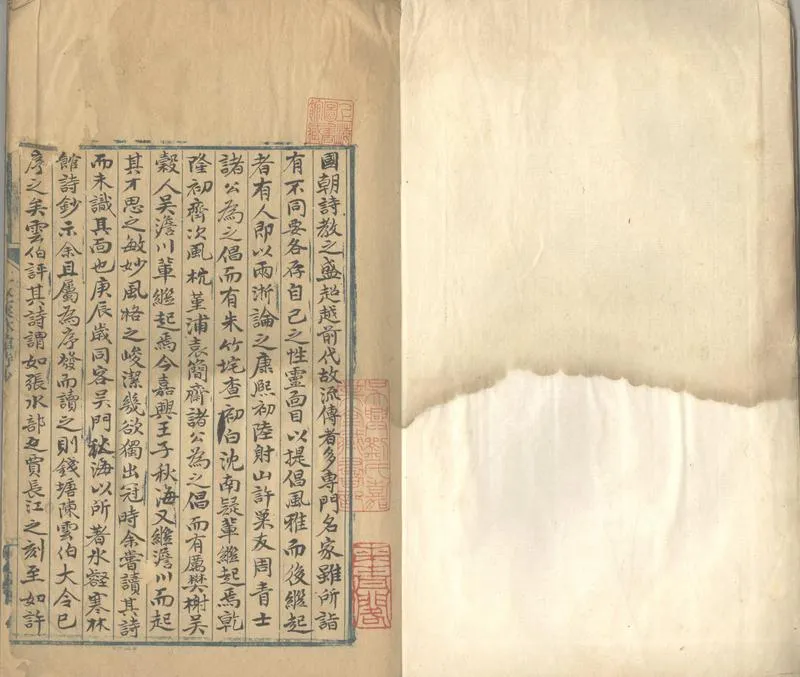 國朝詩教之盛超越前代故流傳者多專門名家雖所詣
有不同要各存自己之性靈面目以提倡風雅而後繼起
者有人即以兩浙論之康熙初陸射山許巢友周青士
諸公為之倡而有朱竹垞查初白沈南疑輩繼起焉乾
隆初齊次風杭堇浦袁簡齋諸公為之倡而有厲樊榭吳
穀人吳澹川輩繼起焉今嘉興王子秋海又繼澹川而起
其才思之敏妙風格之峻潔幾欲獨出冠時余嘗讀其詩
而未識其面也庚辰歲同客吳門秋海以所著冰壑寒林
館詩鈔示余且屬為序發而讀之則錢塘陳雲伯大令已
序之矣雲伯評其詩謂如張水部之賈長江之刻至如許